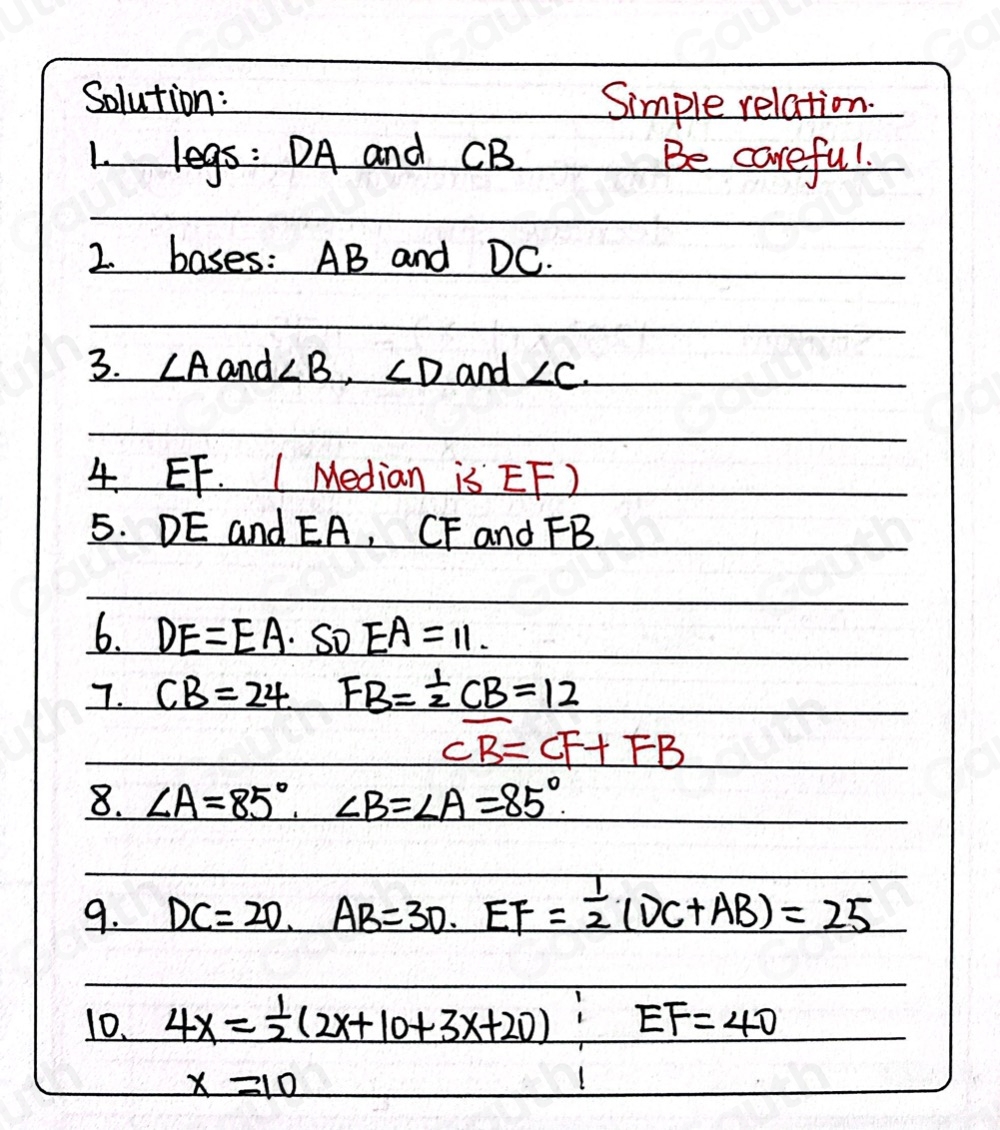 Solution:
Simple relation.
1. legs: DA and CB
Be careful.
2. bases: AB and DC.
3. ∠A and ∠B, ∠D and ∠C.
4. EF. ( Median is EF )
5. DE and EA, CF and FB.
6. DE=EA. SO EA=11.
7. CB=24. FB=½CB=12
CB=CF+FB
8. ∠A=85°. ∠B=∠A=85°.
9. DC=20. AB=30. EF=½(DC+AB)=25
10. 4x=½(2x+10+3x+20) EF=40
x=10
Gauth